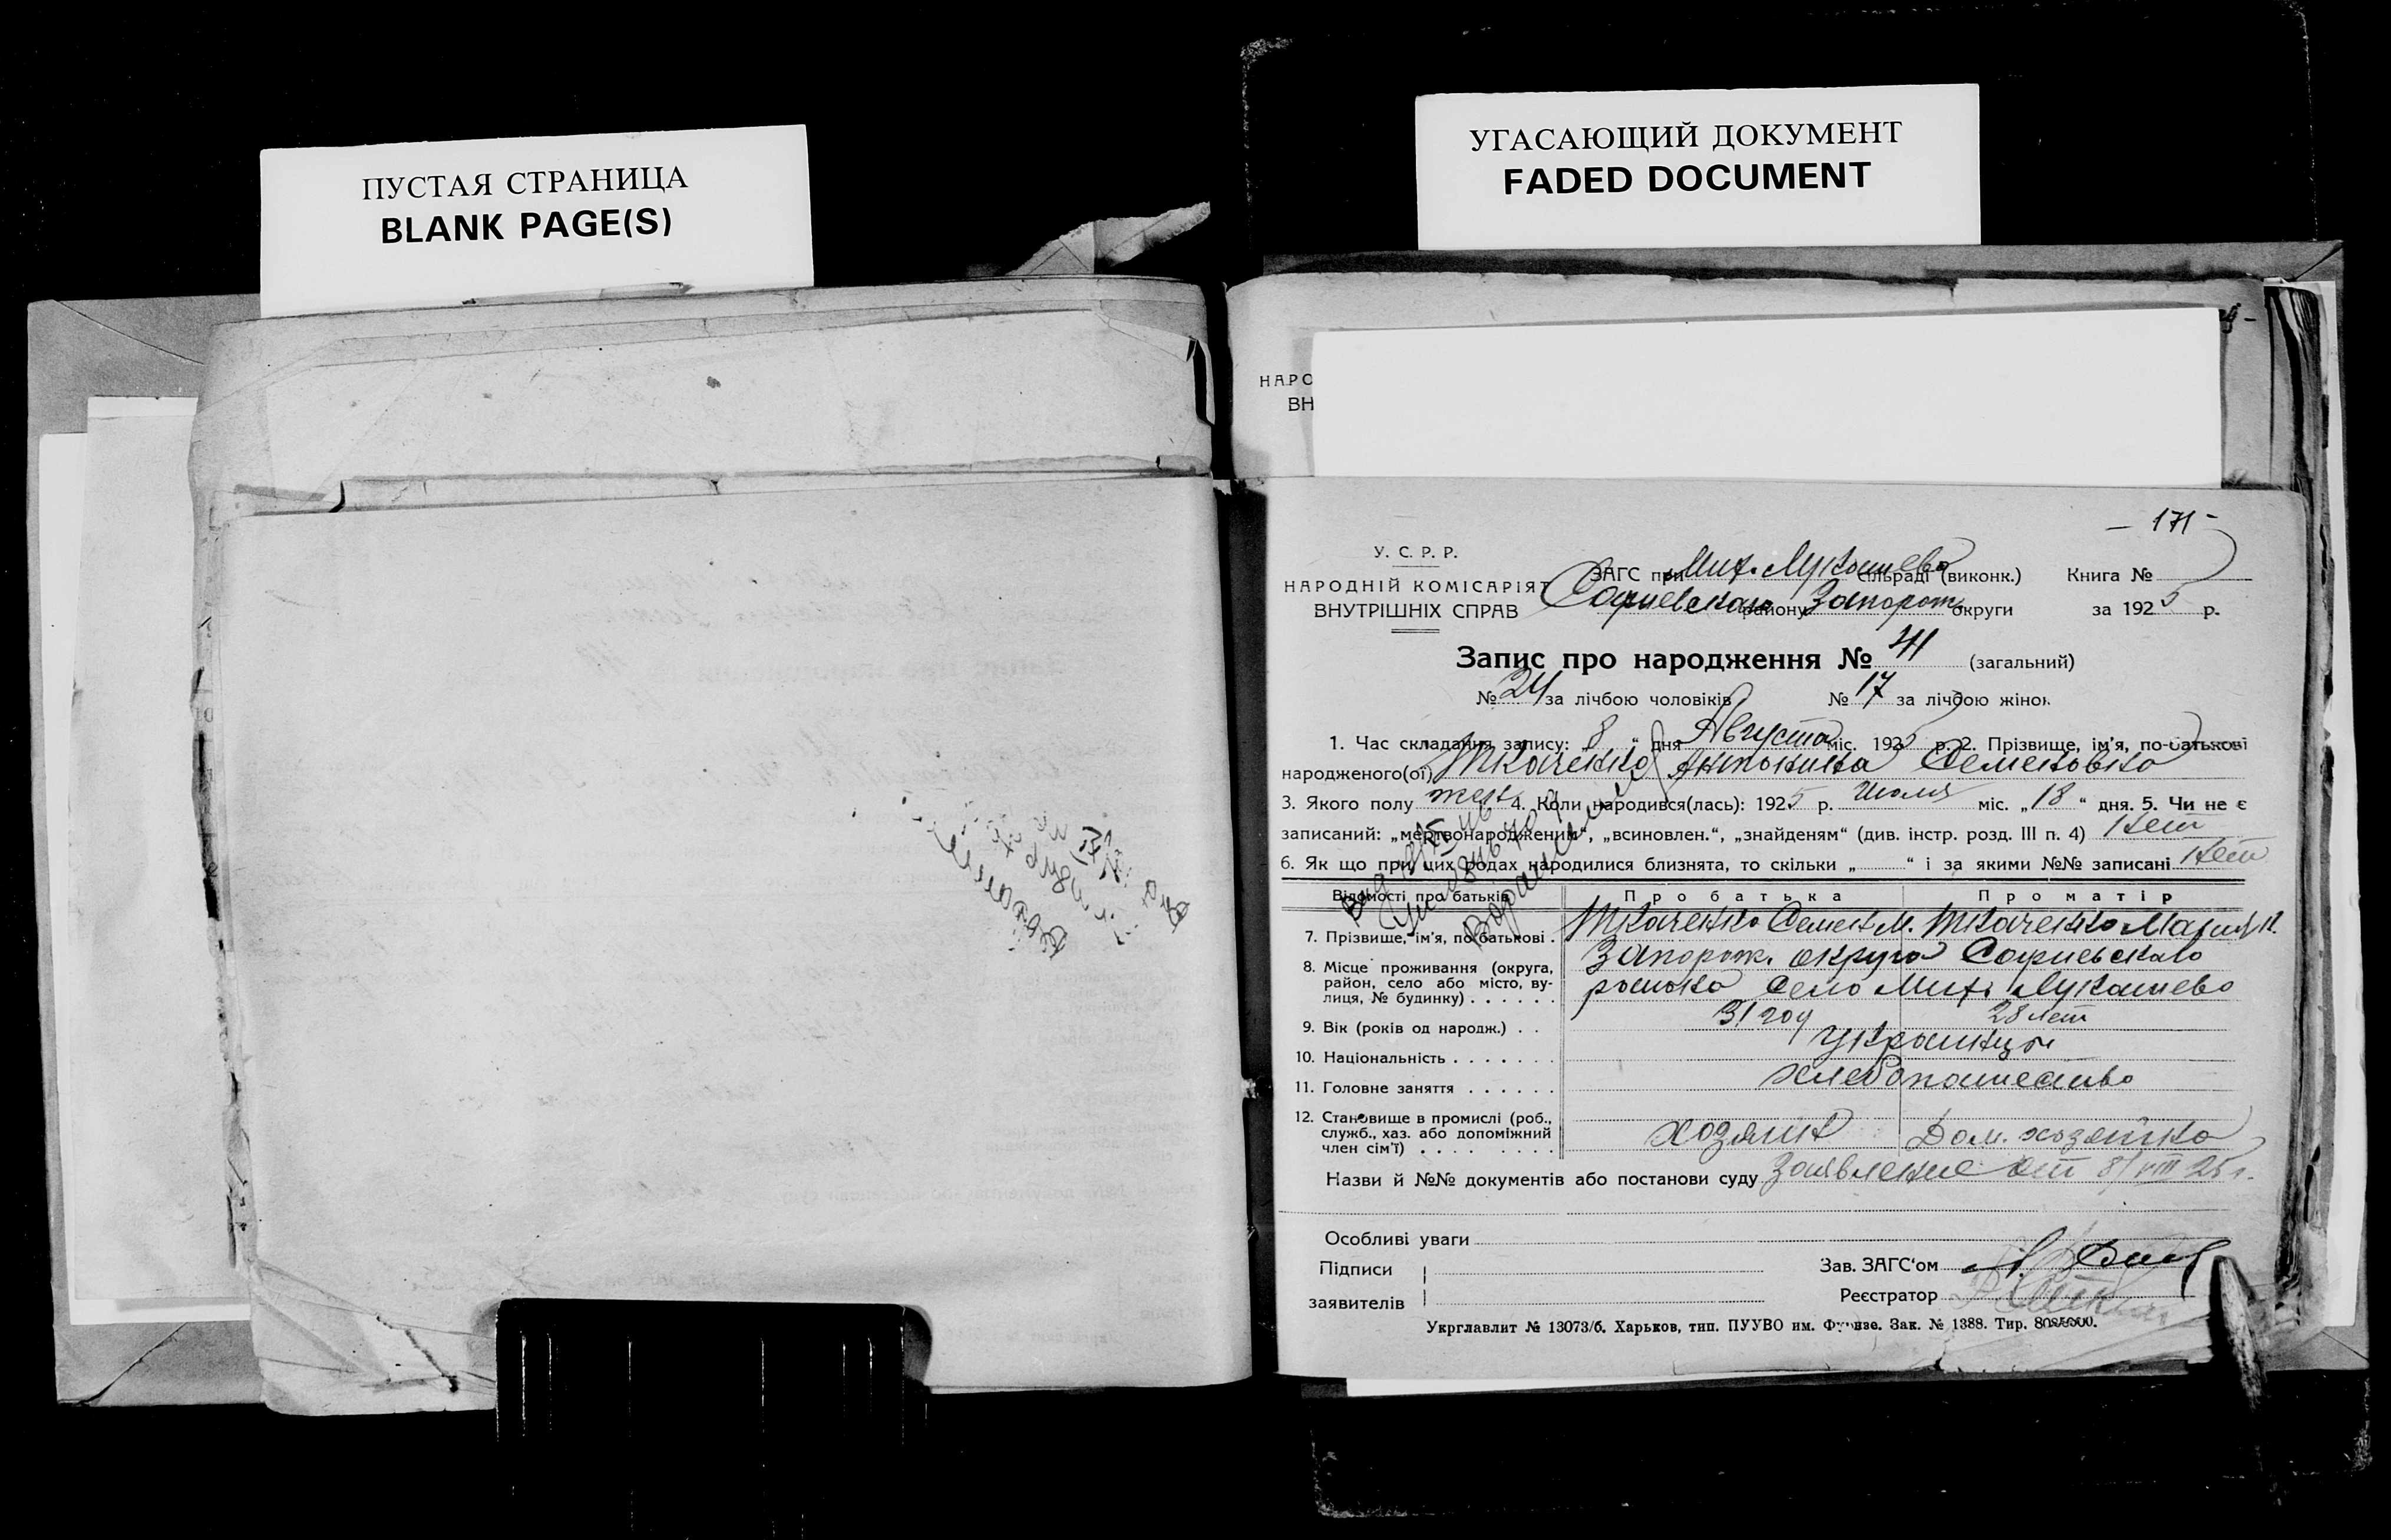 ПУСТАЯ СТРАНИЦА
BLANK PAGE(S)
УГАСАЮЩИЙ ДОКУМЕНТ
FADED DOCUMENT
НАРО
ВН
— 171 -
У. С. Р. Р.
НАРОДНІЙ КОМІСАРІЯТ
ВНУТРІШНІХ СПРАВ
ЗАГС при Мих. Лукашево сільраді (виконк.) Книга №
Софиевскаго району Запорож. округи за 1925 р.
Запис про народження № 41 (загальний)
№ 24 за лічбою чоловіків № 17 за лічбою жінок
1. Час складання запису: „8“ дня Августа міс. 1925 р. 2. Прізвище, ім'я, по-батькові
народженого(ої) Ткаченко Антонина Семеновна
3. Якого полу жен. 4. Коли народився(лась): 1925 р. Июля міс. „18“ дня. 5. Чи не є
записаний: „мертвонародженим“, „всиновлен.“, „знайденям“ (див. інстр. розд. III п. 4) Нет
6. Як що при цих родах народилися близнята, то скільки „ “ і за якими №№ записані Нет
Відомості про батьків Про батька Про матір
7. Прізвище, ім'я, по батькові . Ткаченко Семен М. Ткаченко Мария П.
8. Місце проживання (округа, район, село або місто, вулиця, № будинку) . . . . . . Запорож. округа Софиевскаго
района Село Мих. Лукашево
9. Вік (років од народж.) . . 31 год 28 лет
10. Національність . . . . . . . Украинцы
11. Головне заняття . . . . . . хлебопашество
12. Становище в промислі (роб., служб., хаз. або допоміжний член сім'ї) . . . . . . . . хозяин Дом. хозяйка
Назви й №№ документів або постанови суду Заявление от 8/VIII 25 г.
Особливі уваги
Підписи
заявителів
Зав. ЗАГС'ом
Реєстратор
Укрглавлит № 13073/б. Харьков, тип. ПУУВО им. Фрунзе. Зак. № 1388. Тир.